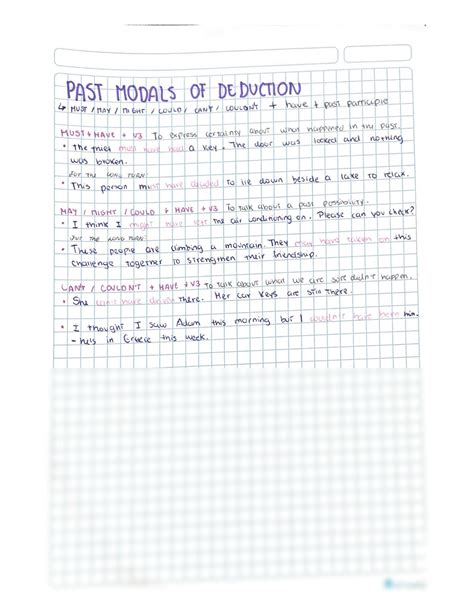 PAST MODALS OF DEDUCTION
↳ MUST / MAY / MIGHT / COULD / CAN'T / COULDN'T + have + past participle
MUST + HAVE + V3 To express certainty about what happened in the past.
• The thief must have had a key. The door was locked and nothing
was broken.
FOR THE LONG TURN:
• This person must have decided to lie down beside a lake to relax.
MAY / MIGHT / COULD + HAVE + V3 To talk about a past possibility.
• I think I might have left the air conditioning on. Please can you check?
FOR THE LONG TURN:
• These people are climbing a mountain. They have taken on this
challenge together to strengthen their friendship.
CAN'T / COULDN'T + HAVE + V3 To talk about what we are sure didn't happen.
• She can't have there. Her car keys are still there.
• I thought I saw Adam this morning but I have been him.
- he's in Greece this week.